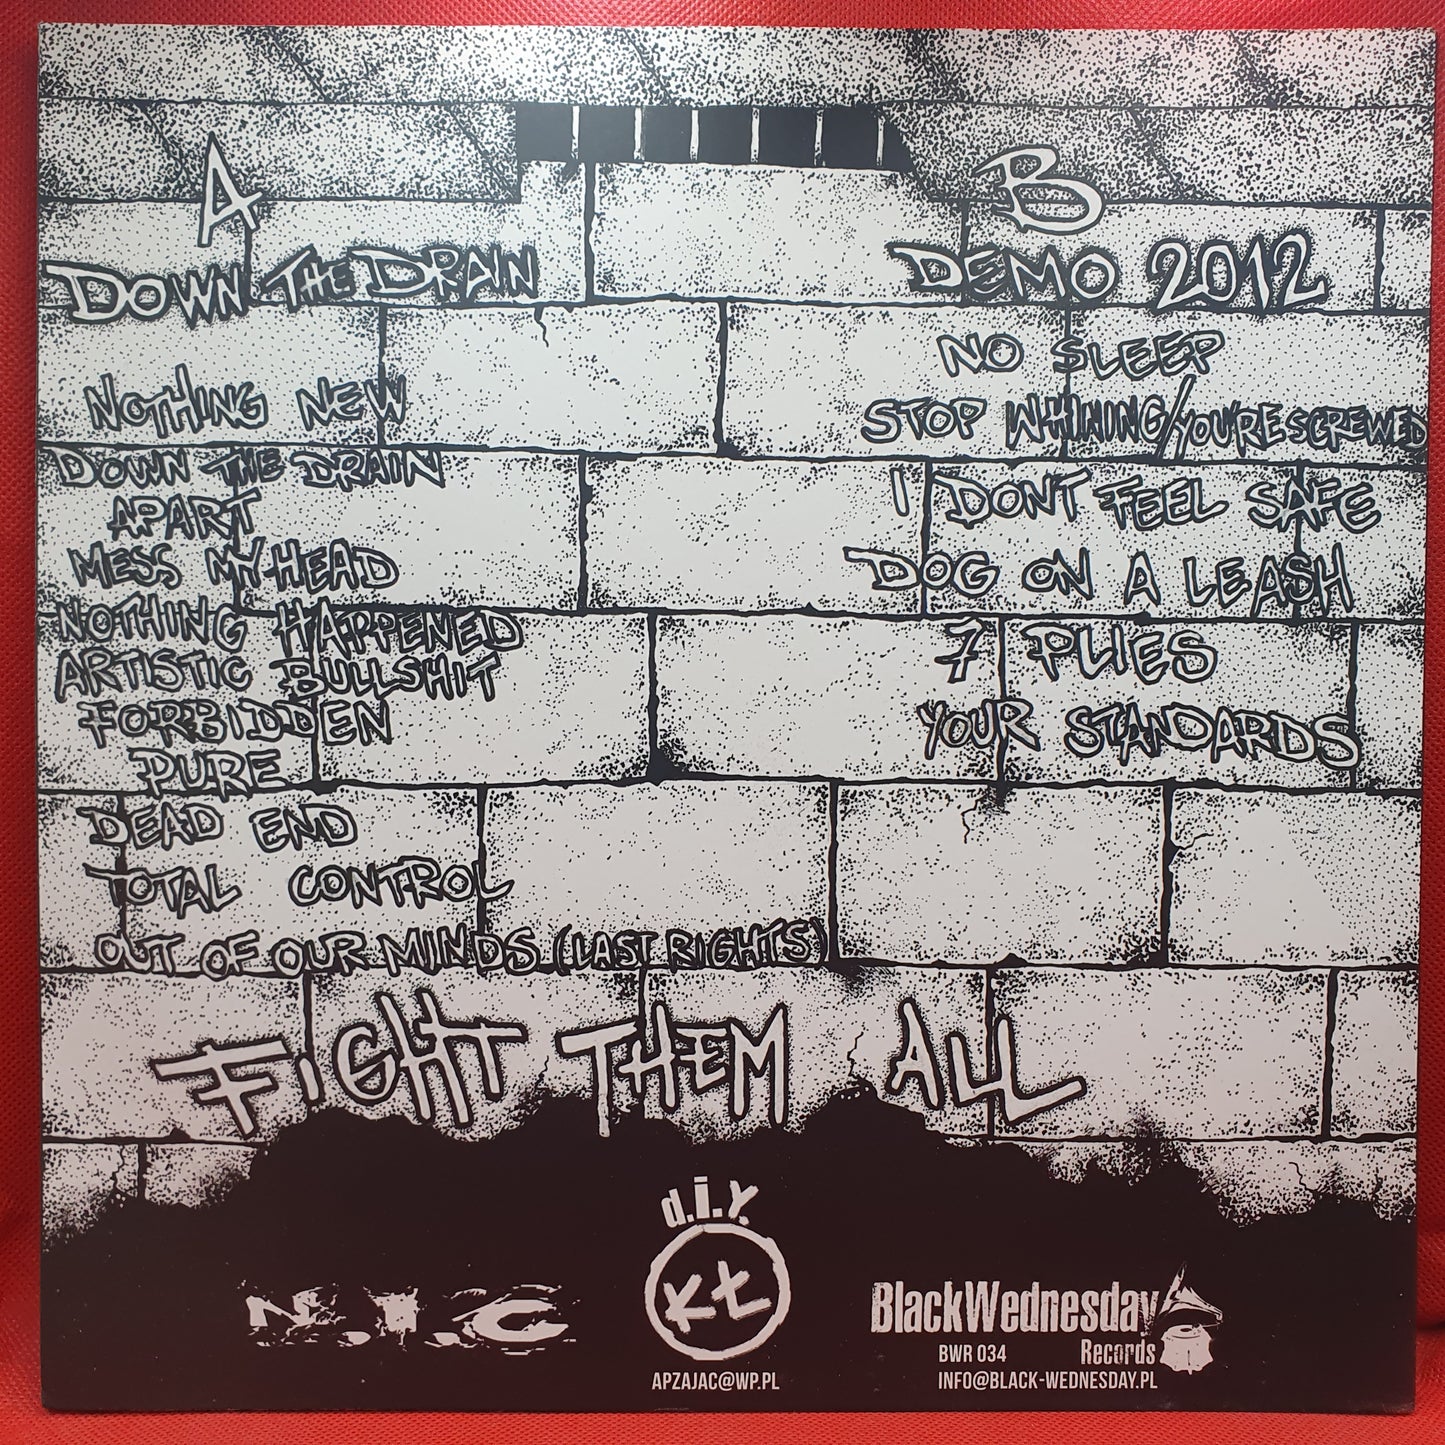 A
DOWN THE DRAIN
NOTHING NEW
DOWN THE DRAIN
APART
MESS MY HEAD
NOTHING HAPPENED
ARTISTIC BULLSHIT
FORBIDDEN
PURE
DEAD END
TOTAL CONTROL
OUT OF OUR MINDS (LAST RIGHTS)
FIGHT THEM ALL
B
DEMO 2012
NO SLEEP
STOP WHINING/YOU'RE SCREWED
I DONT FEEL SAFE
DOG ON A LEASH
7 PLIES
YOUR STANDARDS
N.I.C
d.i.Y.
KT
APZAJAC@WP.PL
BlackWednesday
Records
BWR 034
INFO@BLACK-WEDNESDAY.PL